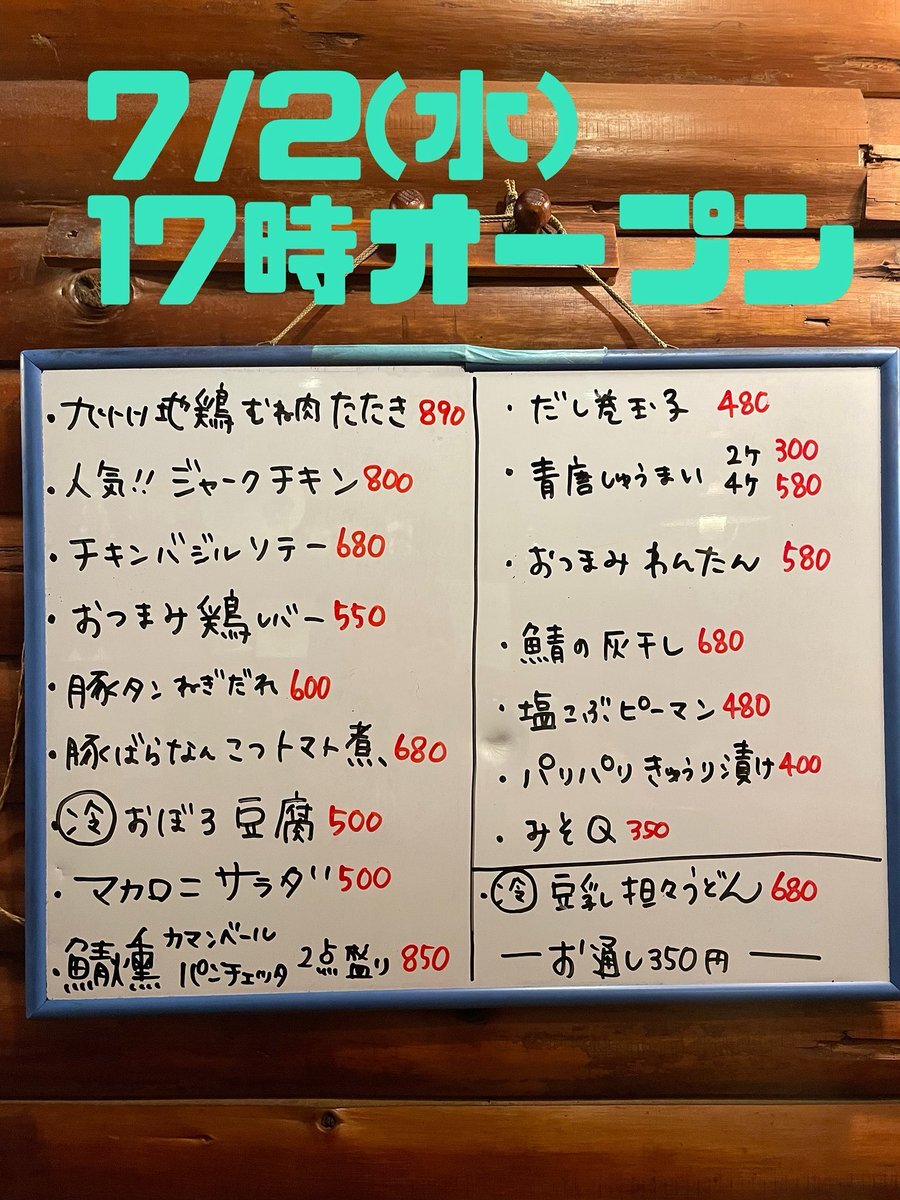 7/2(水)
17時オープン
・九州 地鶏 むね肉 たたき 890
・人気!! ジャークチキン 800
・チキンバジルソテー 680
・おつまみ 鶏レバー 550
・豚タン ねぎだれ 600
・豚ばらなんこつトマト煮 680
・冷 おぼろ豆腐 500
・マカロニサラダ 500
・鯖燻 カマンベール
パンチェッタ 2点盛り 850
・だし巻玉子 480
・青唐しゅうまい 2ケ 300
4ケ 580
・おつまみ わんたん 580
・鯖の灰干し 680
・塩こぶピーマン 480
・パリパリきゅうり漬け 400
・みそQ 350
・冷 豆乳担々うどん 680
― お通し350円 ―